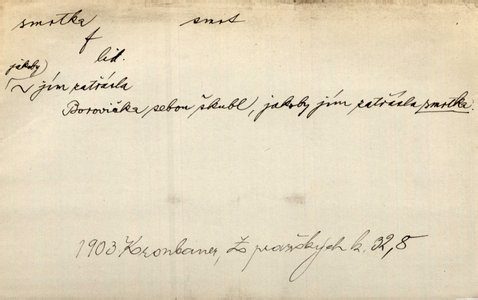 smrtka smrt
f
lid.
jakoby
jím zatřásla
Borovička sebou škubl, jakoby jím zatřásla smrtka.
1903 Kronbauer, Z pražských k. 32,8